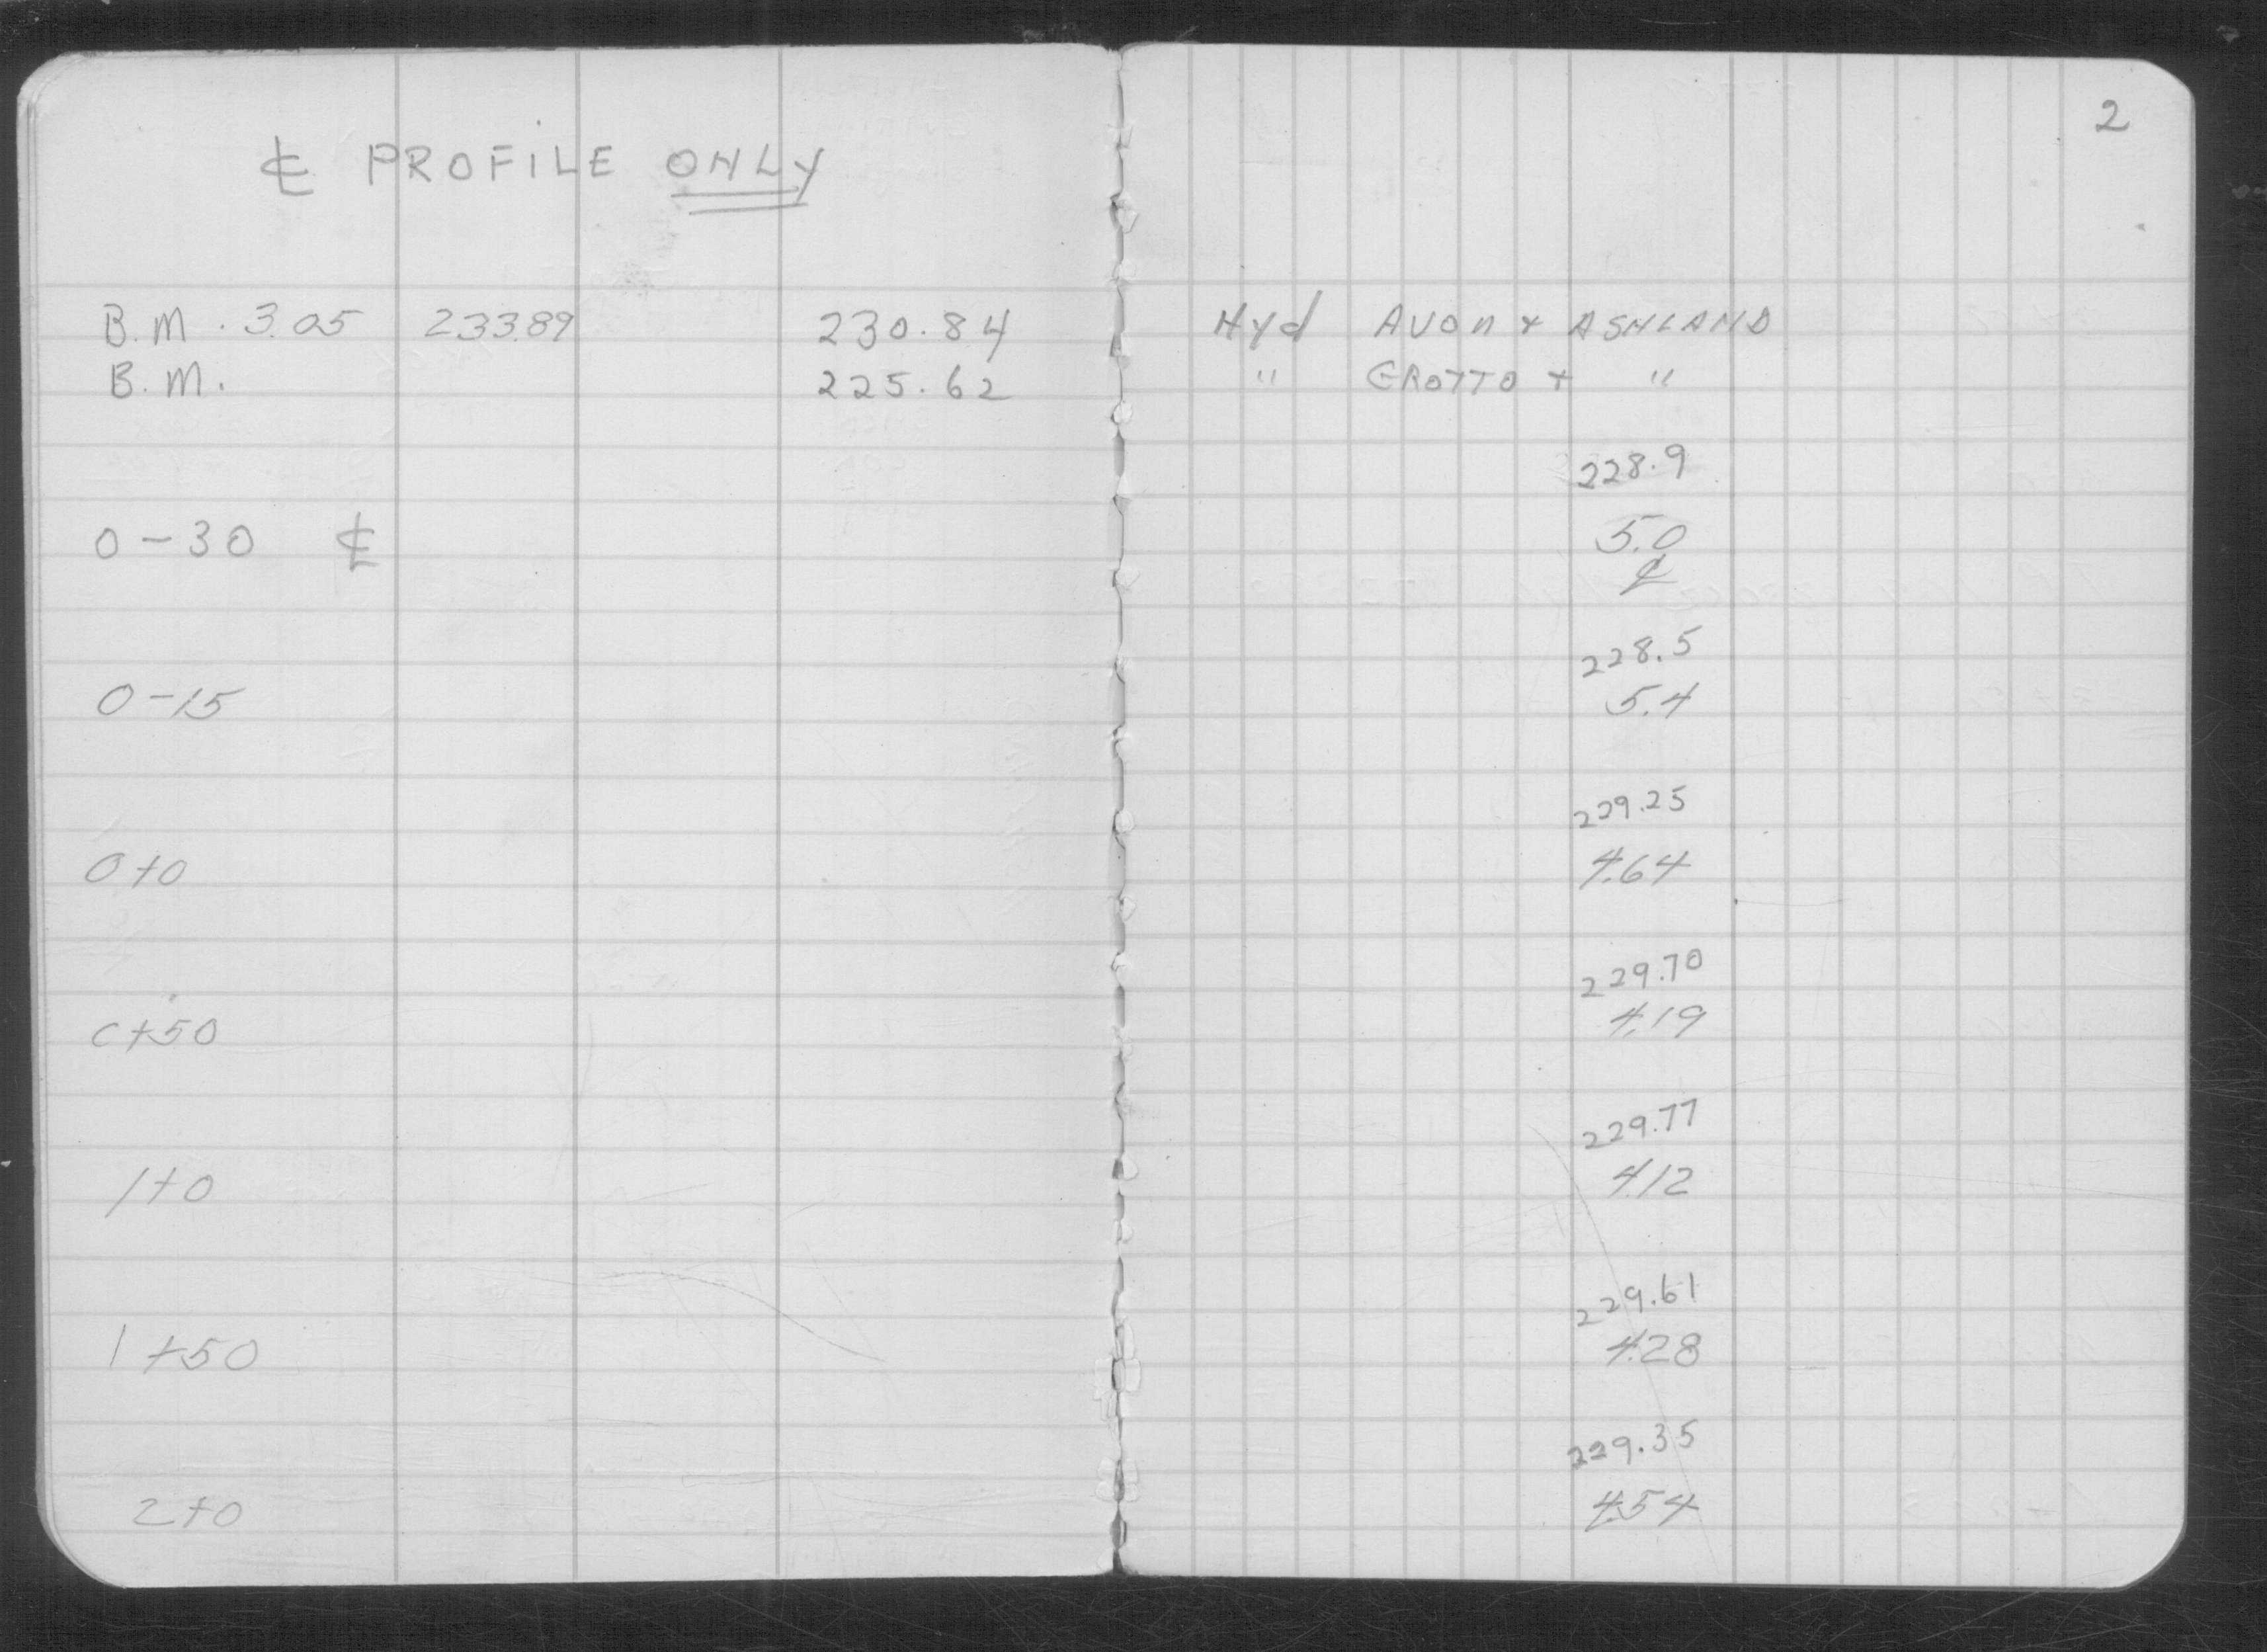 2
℄ PROFILE ONLY
B.M. 3.05 233.89 230.84 Hyd AVON + ASHLAND
B.M. 225.62 " GROTTO + "
228.9
0-30 ℄ 5.0
℄
228.5
0-15 5.4
229.25
0+0 4.64
229.70
0+50 4.19
229.77
1+0 4.12
229.61
1+50 4.28
229.35
2+0 4.54